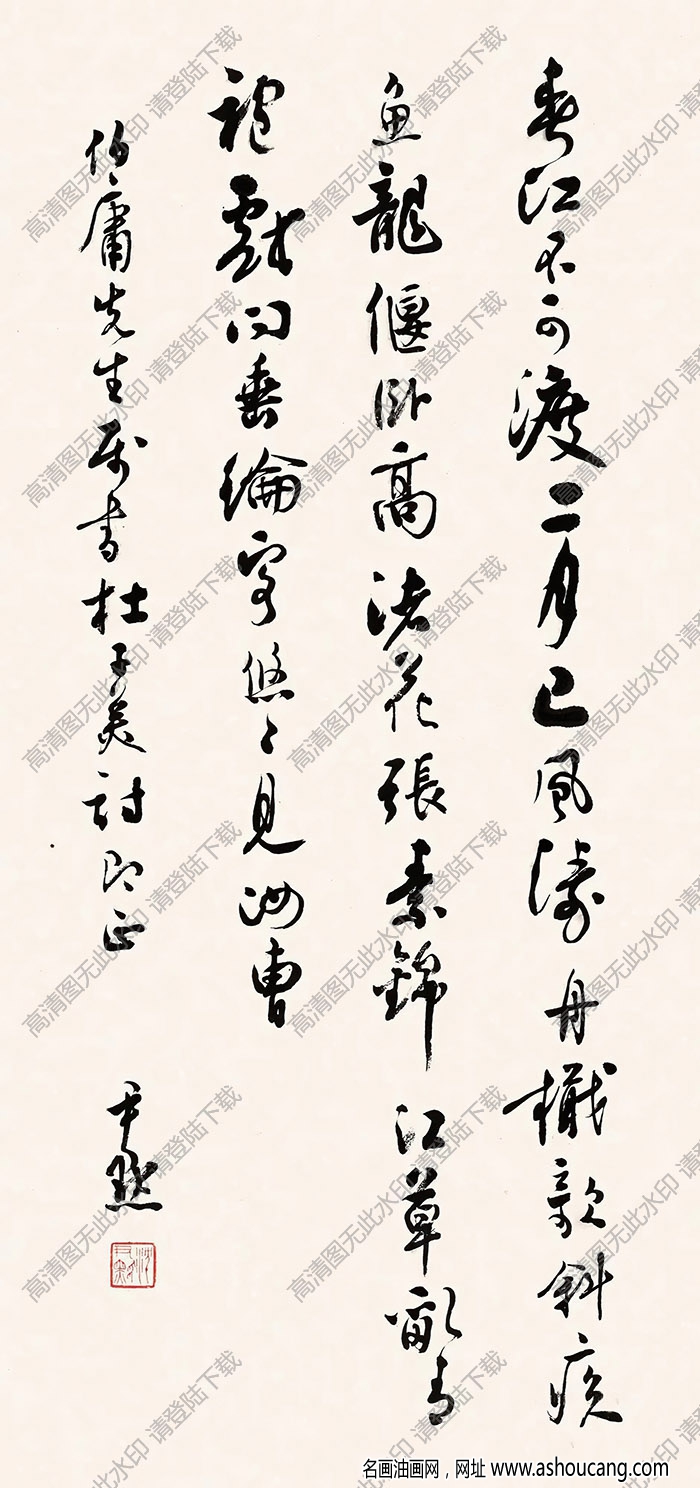 春江不可渡二月已風濤舟檝欹斜疾
魚龍偃卧高渚花張素錦江草亂青
袍戲問垂綸客悠〻見汝曹
伯庸先生属書杜子美詩即正
尹默
沈尹默
高清图无此水印 请登陆下载
名画油画网，网址 www.ashoucang.com